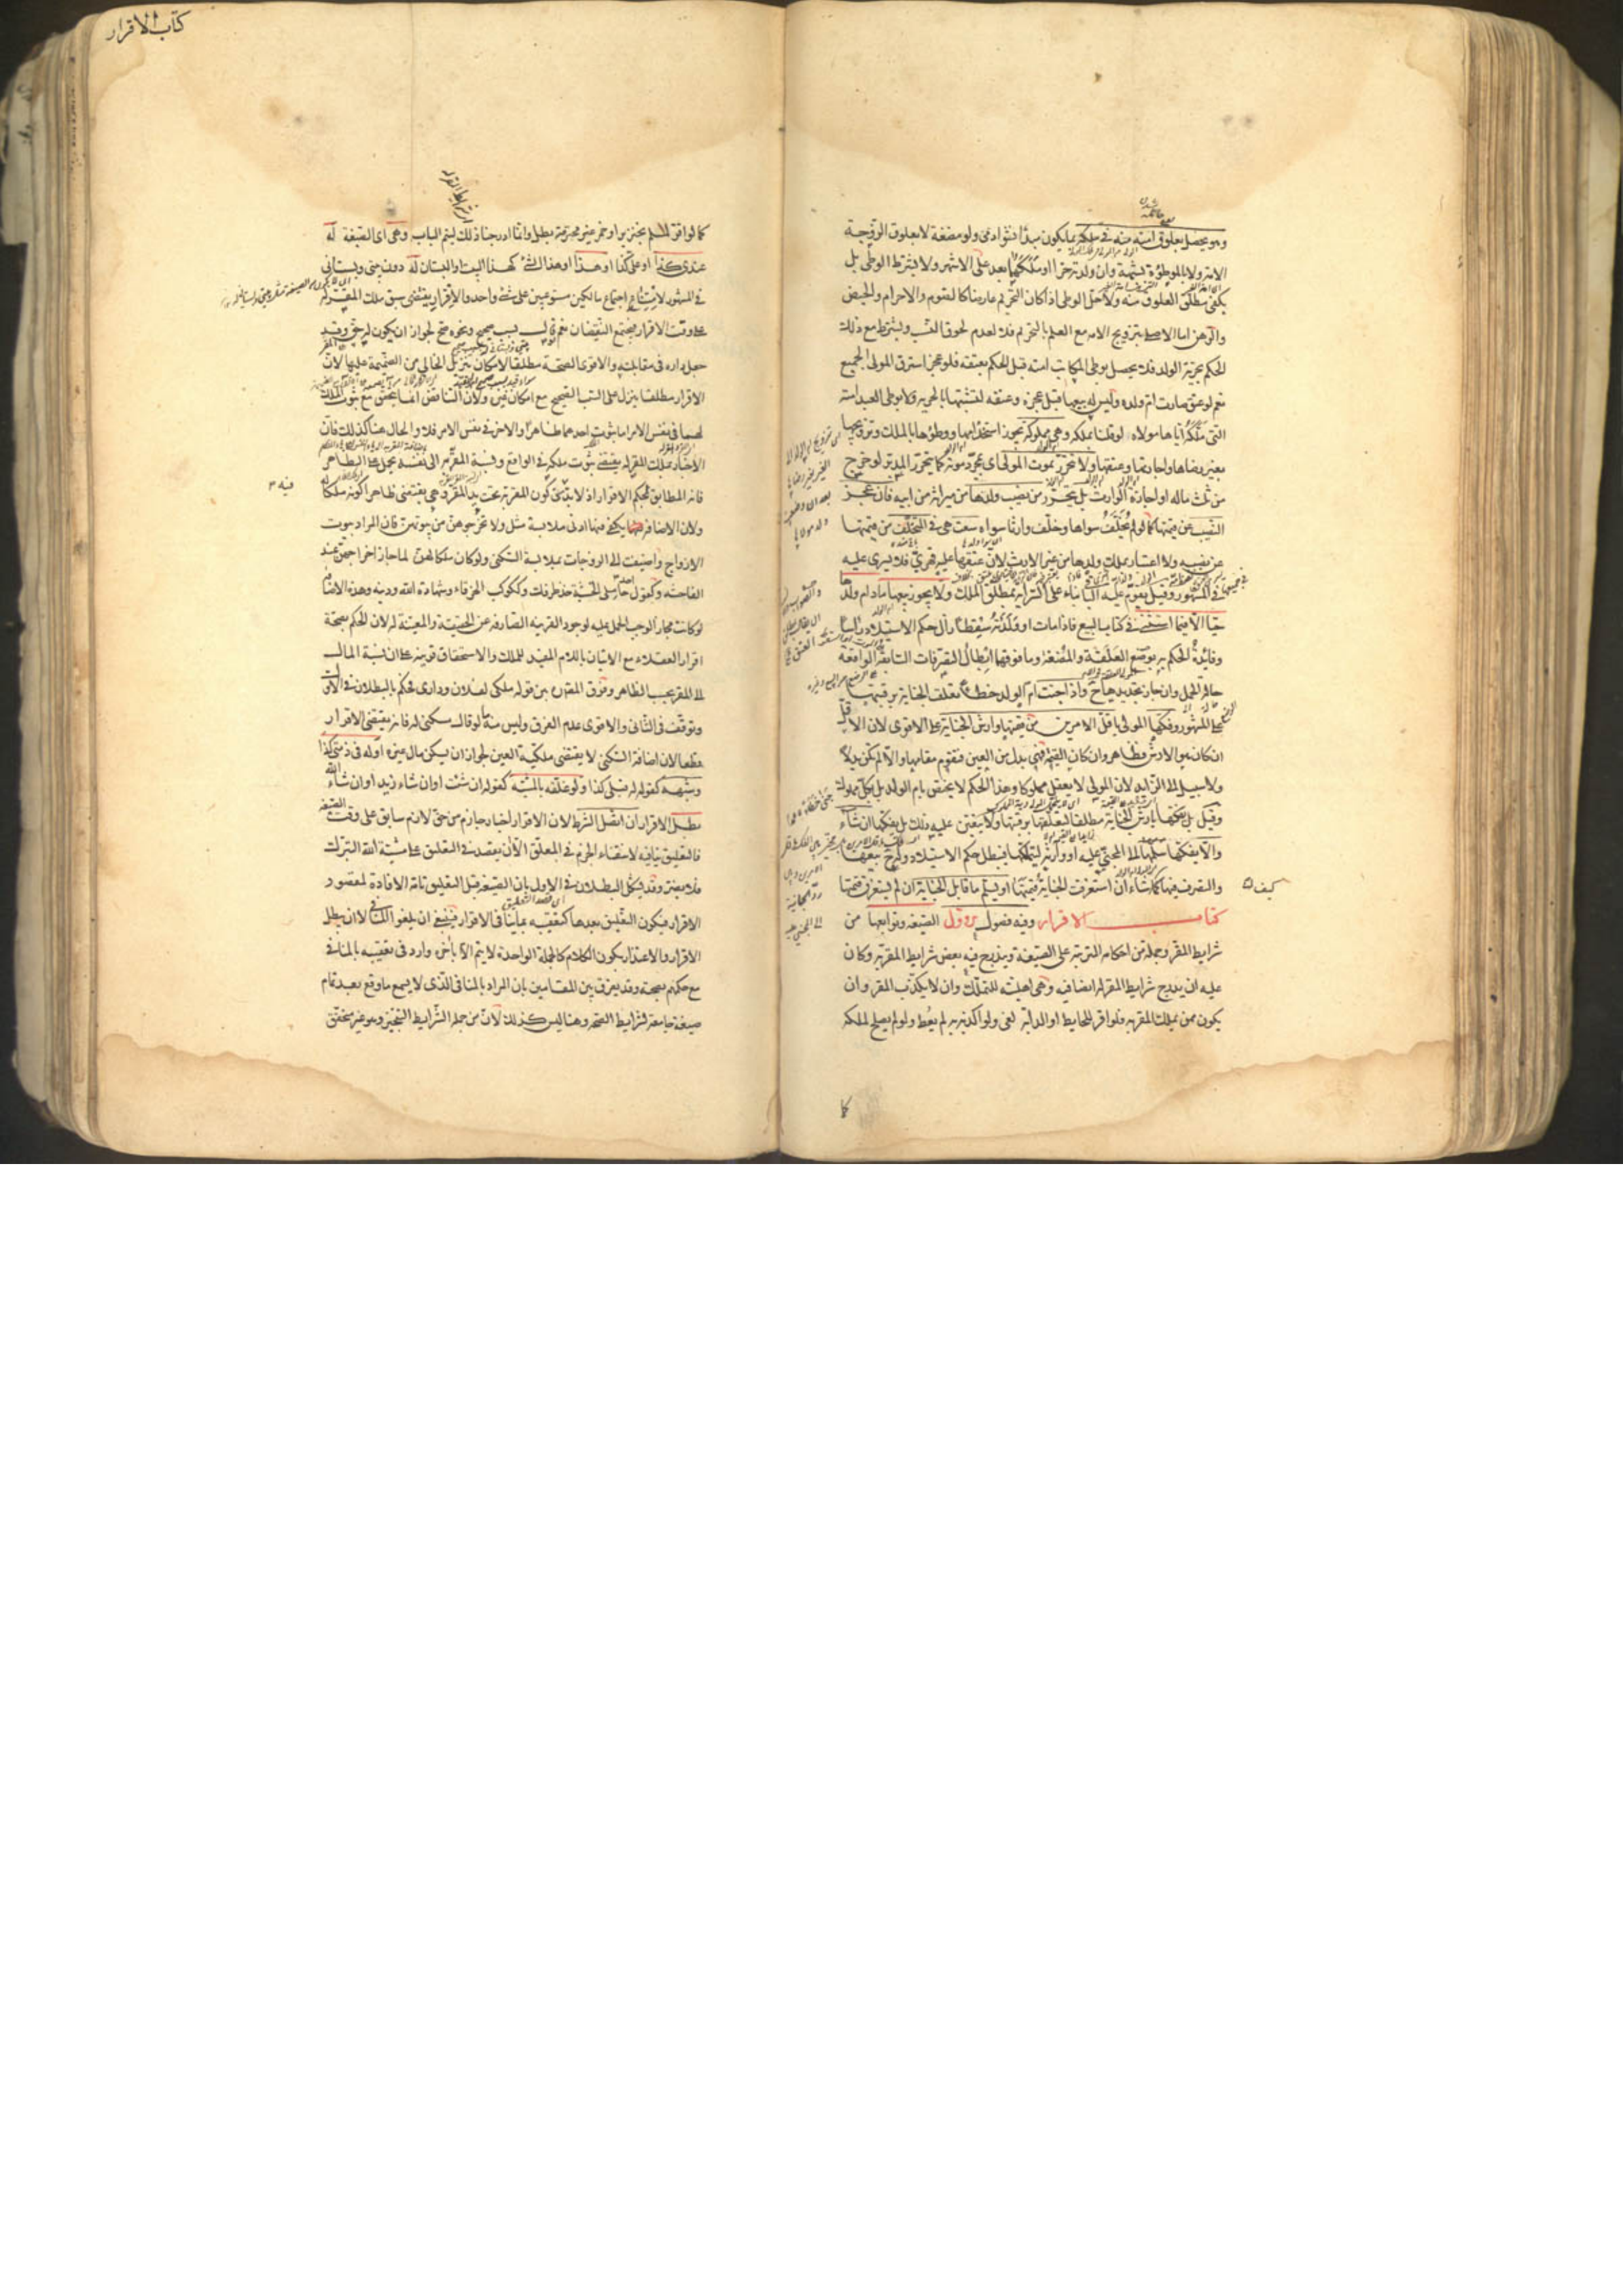 كتاب الاقرار
وهو يحصل بعلوق امته منه في ملكه بما يكون مبدأ نشوء ادمي ولو مضغة لا بعلوق الزوجة
الامة ولا الموطوءة بشبهة وان ولدته حرا او ملكهما بعد على الاشهر ولا يشترط الوطي بل
يكفي مطلق العلوق منه ولا حل الوطي اذا كان التحريم عارضا كالصوم والاحرام والحيض
والرهن اما الاصلي بتزويج الامة مع العلم بالتحريم فلا لعدم لحوق النسب ويشترط مع ذلك
الحكم بحرية الولد فلا يحصل بوطي المكاتب امته قبل الحكم بعتقه فلو عجز استرق المولى الجميع
نعم لو عتق صارت ام ولده وليس له بيعها قبل عجزه وعتقه لتشبثها بالحرية ولا بوطي العبد امته
التي ملكه اياها مولاه لو قلنا بملكه وهي مملوكة يجوز استخدامها ووطؤها بالملك وتزويجها
بغير رضاها واجارتها وعتقها ولا تتحرر بموت المولى اي بمجرد موته كما يتحرر المدبر لو خرج
من ثلث ماله او اجازه الوارث بل يتحرر من نصيب ولدها من ميراثه من ابيه فان عجز
النصيب عن قيمتها كما لو لم يخلف سواها وخلف وارثا سواه سعت هي في المتخلف من قيمتها
عن نصيبه ولا اعتبار بملك ولدها من غير الارث لان عتقها عليه قهري فلا يسري عليه
في المشهور وقيل يقوم عليه الباقي بناء على السراية بمطلق الملك ولا يجوز بيعها ما دام ولدها
حيا الا فيما استثني في كتاب البيع فاذا مات او ولدته سقطا زال حكم الاستيلاد راسا
وفائدة الحكم به بوضع العلقة والمضغة وما فوقهما ابطال التصرفات السابقة الواقعة
حالة الحمل وان جاز تجديدها ح واذا جنت ام الولد خطأ تعلقت الجناية برقبتها
على المشهور وفكها المولى باقل الامرين من قيمتها وارش الجناية على الاقوى لان الاقل
ان كان هو الارش فظاهر وان كان القيمة فهي بدل من العين فتقوم مقامها والا لم تكن بدلا
ولا سبيل الى الزايد لان المولى لا يعقل مملوكا وهذا الحكم لا يختص بام الولد بل بكل مملوك
وقيل بل يفكها بارش الجناية مطلقا لتعلقها برقبتها ولا يتعين عليه ذلك بل يفكها ان شاء
والا يفكها سلمها الى المجني عليه او وارثه ليتملكها فيبطل حكم الاستيلاد ولـه ح بيعها
والتصرف فيها كما شاء ان استغرقت الجناية قيمتها او يسلم ما قابل الجناية ان لم يستغرق قيمتها
كتاب الاقرار وفيه فصول الاول الصيغة وتوابعها من
شرايط المقر وجملة من احكامه المترتبة على الصيغة ويندرج فيه بعض شرايط المقر به وكان
عليه ان يدرج شرايط المقر له ايضا فيه وهي اهليته للتملك وان لا يكذب المقر وان
يكون ممن يملك المقر به فلو اقر للحايط او الدابة لغى ولو اكذبه به لم يعط ولو لم يصلح لملكه
كا
كما لو اقر لمسلم بخنزير او خمر غير محترمة بطل وانما ادرجنا ذلك ليتم الباب وهي اي الصيغة له
عندي كذا او علي كذا او هذا او هذا الشئ كهذا البيت او البستان له دون بيتي وبستاني
في المشهور لامتناع اجتماع مالكين مستوعبين على شئ واحد والاقرار يقتضي سبق ملك المقر له
على وقت الاقرار فيجتمع النقيضان نعم لو قال بسبب صحيح ونحوه صح لجواز ان يكون له حق وقد
جعل داره في مقابلته والاقوى الصحة مطلقا لامكان تنزيل الخالي من الضميمة عليها لان
الاقرار مطلقا ينزل على السبب الصحيح مع امكان غيره ولان التناقض انما يتحقق مع ثبوت الملك
لهما في نفس الامر اما ثبوت احدهما ظاهرا والاخر في نفس الامر فلا والحال هنا كذلك فان
الاخبار بملك المقر له يقتضي ثبوت ملكه في الواقع ونسبة المقر به الى نفسه يحمل على الظاهر
فانه المطابق لحكم الاقرار اذ لا بد من كون المقر به تحت يد المقر وهي يقتضي ظاهرا كونه ملكا له
ولان الاضافة يكفي فيها ادنى ملابسة مثل ولا تخرجوهن من بيوتهن فان المراد بيوت
الازواج واضيفت الى الزوجات بملابسة السكنى ولو كان ملكا لهن لما جاز اخراجهن عند
الفاحشة وكقول احد حاملي الخشبة خذ طرفك وككوكب الخرقاء وشهادة الله ودينه وهذه الاضافة
لو كانت مجازا لوجب الحمل عليه لوجود القرينة الصارفة عن الحقيقة والمعينة له لان الحكم بصحة
اقرار العقلاء مع الاتيان باللام المفيد للملك والاستحقاق قرينة على ان نسبة المال
الى المقر بحسب الظاهر وفرق المصنف بين قوله ملكي لفلان وداري فحكم بالبطلان في الاول
وتوقف في الثاني والاقوى عدم الفرق وليس منه ما لو قال مسكني له فانه يقتضي الاقرار
قطعا لان اضافة السكنى لا يقتضي ملكية العين لجواز ان يسكن مال غيره او له في ذمتي كذا
وشبهه كقوله له قبلي كذا ولو علقه بالمشية كقوله ان شئت او ان شاء زيد او ان شاء الله
بطل الاقرار ان اتصل الشرط لان الاقرار اخبار جازم من حق لازم سابق على وقت الصيغة
فالتعليق ينافيه لانتفاء الجزم في المعلق الا ان يقصد في التعليق على مشية الله التبرك
فلا يضر وقد يشكل البطلان في الاول بان الصيغة قبل التعليق تامة الافادة لمقصود
الاقرار فيكون التعليق بعدها كتعقيبه بما ينافي الاقرار فينبغي ان يلغو المنافي لا ان يبطل
الاقرار والاعتذار بكون الكلام كالجملة الواحدة لا يتم الا باخره وارد في تعقيبه بالمنافي
مع حكمهم بصحته وقد يفرق بين المقامين بان المراد بالمنافي الذي لا يسمع ما وقع بعد تمام
صيغة جامعة لشرايط الصحة وهنا ليس كذلك لان من جملة الشرايط التنجيز وهو غير متحقق